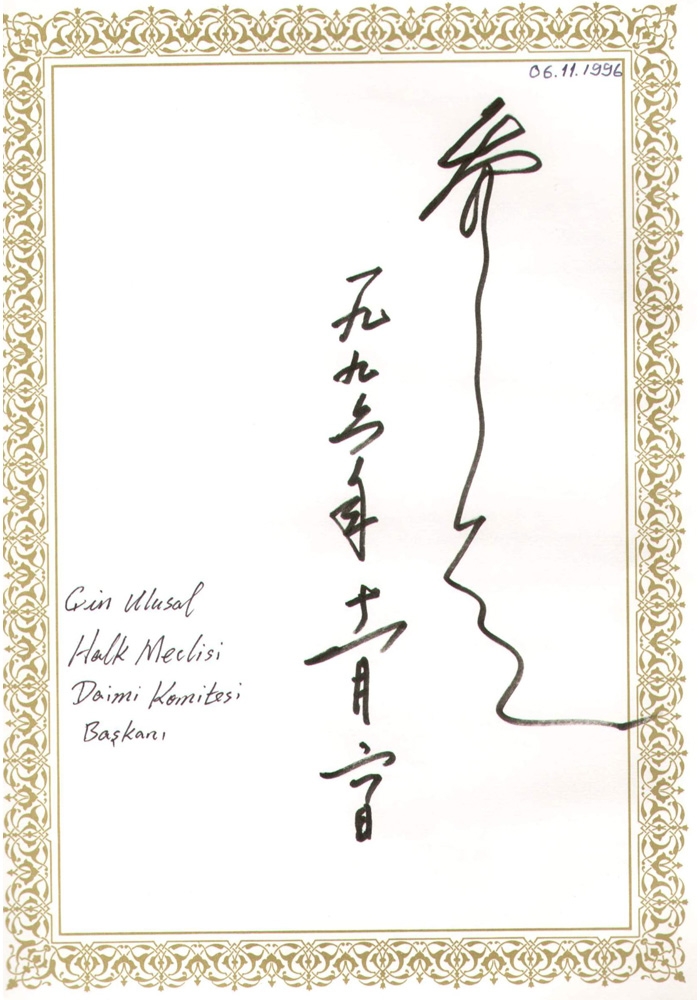 06.11.1996
乔石
一九九六年十一月六日
Çin Ulusal
Halk Meclisi
Daimi Komitesi
Başkanı